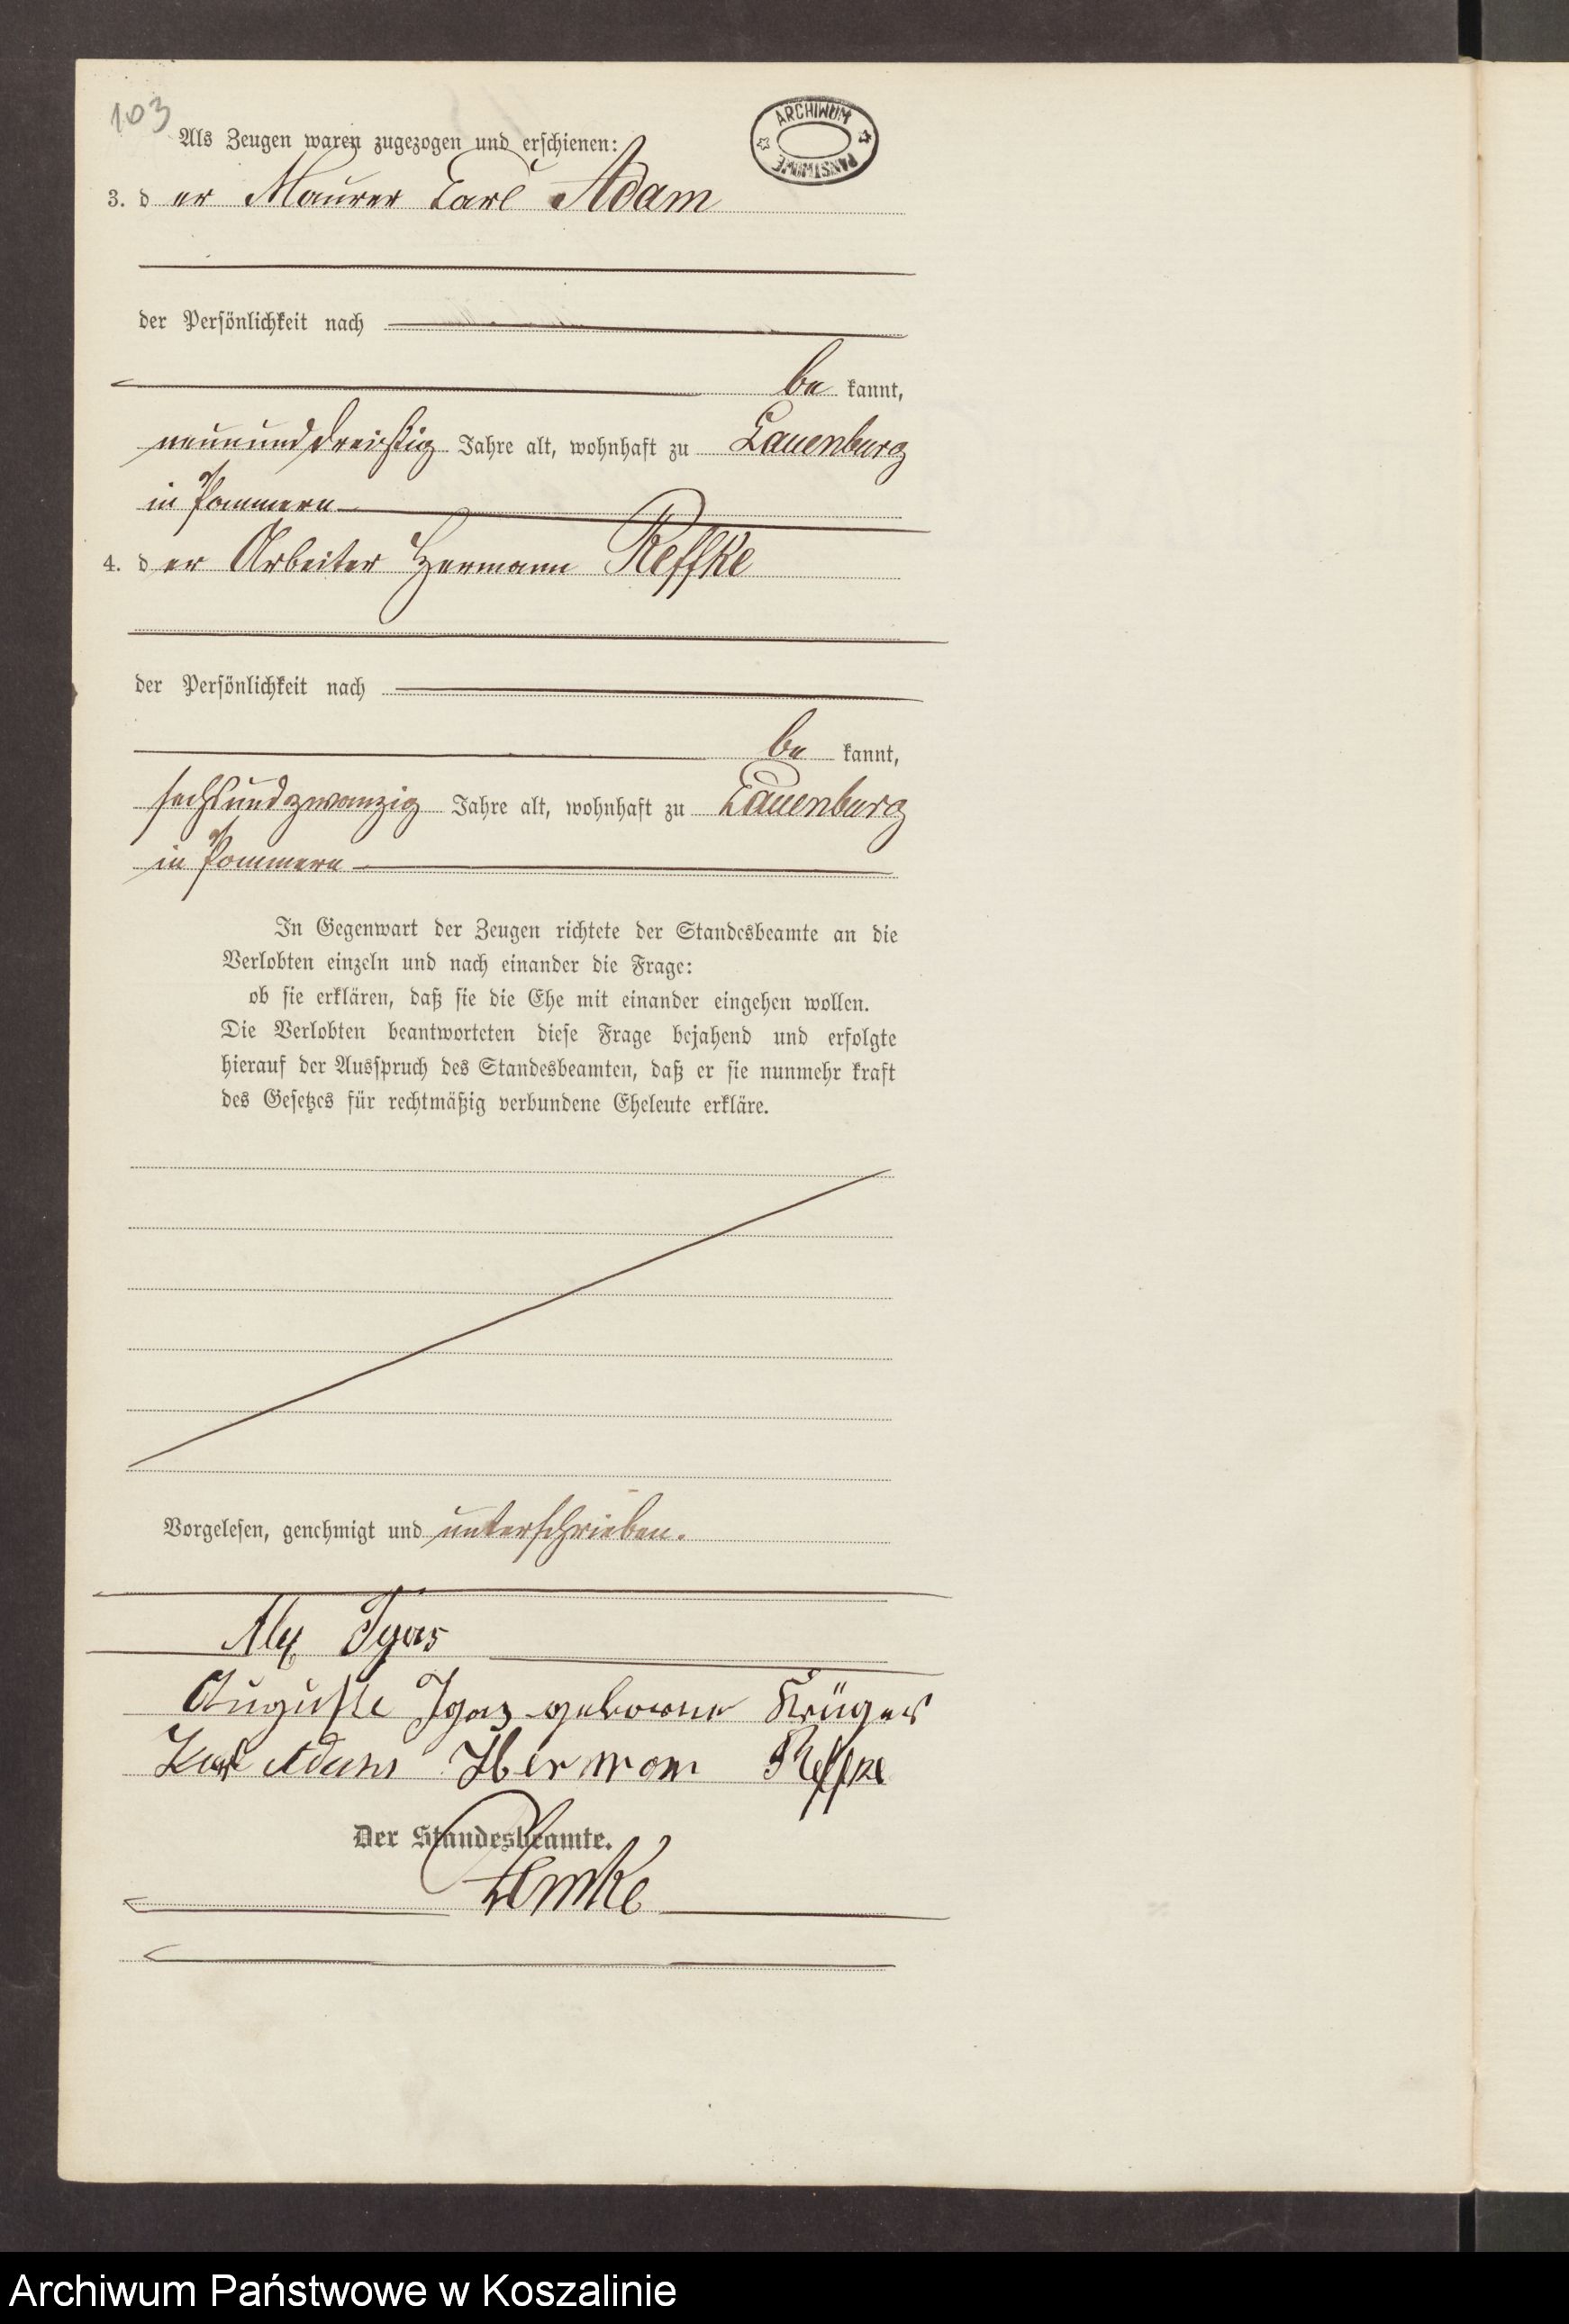 103
ARCHIWUM PAŃSTWOWE
Als Zeugen waren zugezogen und erschienen:
3. der Maurer Carl Adam
der Persönlichkeit nach
be kannt,
neununddreißig Jahre alt, wohnhaft zu Lauenburg
in Pommern
4. der Arbeiter Hermann Reffke
der Persönlichkeit nach
be kannt,
sechsundzwanzig Jahre alt, wohnhaft zu Lauenburg
in Pommern
In Gegenwart der Zeugen richtete der Standesbeamte an die
Verlobten einzeln und nach einander die Frage:
ob sie erklären, daß sie die Ehe mit einander eingehen wollen.
Die Verlobten beantworteten diese Frage bejahend und erfolgte
hierauf der Ausspruch des Standesbeamten, daß er sie nunmehr kraft
des Gesetzes für rechtmäßig verbundene Eheleute erkläre.
Vorgelesen, genehmigt und unterschrieben.
Alex Igas
Auguste Igas geborene Krüger
Karl Adam Herman Reffke
Der Standesbeamte.
Archiwum Państwowe w Koszalinie